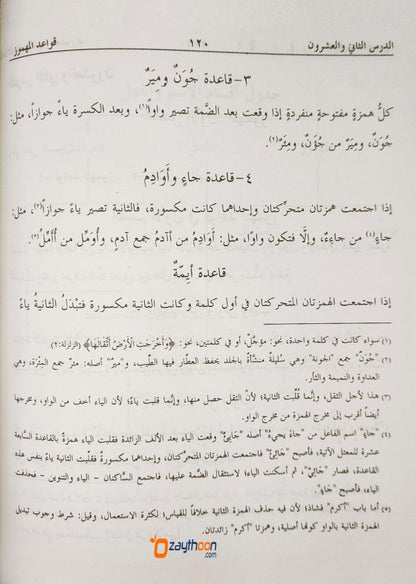 الدرس الثاني والعشرون ١٢٠ قواعد المهموز
٣- قاعدة جُوَنٌ ومِيَرٌ
كلُّ همزةٍ مفتوحةٍ منفردةٍ إذا وقعت بعد الضمّة تصير واواً(١)، وبعد الكسرة ياءً جوازاً، مثل:
جُوَنٌ، ومِيَرٌ من جُؤَنٌ، ومِئَرٌ(٢).
٤- قاعدة جاءٍ وأَوَادِمُ
إذا اجتمعت همزتان متحركتان وإحداهما كانت مكسورة، فالثانية تصير ياءً جوازاً(٣)، مثل:
جاءٍ(٤) من جاءِءٌ، وإلَّا فتكون واوًا، مثل: أَوَادِمُ من أَأادمُ جمع آدم، وأُوَمِّل من أُأَمِّلُ(٥).
قاعدة أيِمّة
إذا اجتمعت الهمزتان المتحركتان في أول كلمة وكانت الثانية مكسورة فتبْدَلُ الثانيةُ ياءً
(١) سواء كانت في كلمة واحدة، نحو: مؤجَّل، أو في كلمتين، نحو: ﴿وَأَخْرَجَتِ الْأَرْضُ أَثْقَالَهَا﴾ (الزلزلة:٢)
(٢) "جُوَنٌ" جمع "الجونة" وهي سُليلة منشّأة بالجلد يحفظ العطّار فيها الطِّيب، و"مِيَرٌ" أصله: مئر جمع المِئرة، وهي
العداوة والنميمة والثأر.
(٣) هذا لأجل الثقل، وإنَّما قُلبت الثانية؛ لأنّ الثقل حصل منها، وإنَّما قلبت ياءً؛ لأن الياء أخف من الواو، ومخرجها
أيضاً أقرب إلى مخرج الهمزة من مخرج الواو.
(٤) "جاءٍ" اسم الفاعل من "جاءَ يجيءُ" أصله "جَايِئٌ" وقعت الياء بعد الألف الزائدة فقلبت الياء همزةً بالقاعدة السابعة
عشرة للمعتل الآتية، فأصبح "جَائِئٌ" فاجتمعت الهمزتان المتحركتان، وإحداهما مكسورةٌ فقلبت الثانية ياءً بنفس هذه
القاعدة، فصار "جَائِيٌ"، ثم أسكنت الياء؛ لاستثقال الضمة عليها، فاجتمع السَّاكنتان - الياء والتنوين - فحذفت
الياء، فأصبح "جَاءٍ".
(٥) أما باب "أكرم" فشاذ؛ لأن فيه حذف الهمزة الثانية خلافاً للقياس؛ لكثرة الاستعمال، وقيل: شرط وجوب تبديل
الهمزة الثانية بالواو كونُها أصلية، وهمزتا "أكرم" زائدتان.
zaythoon
.com